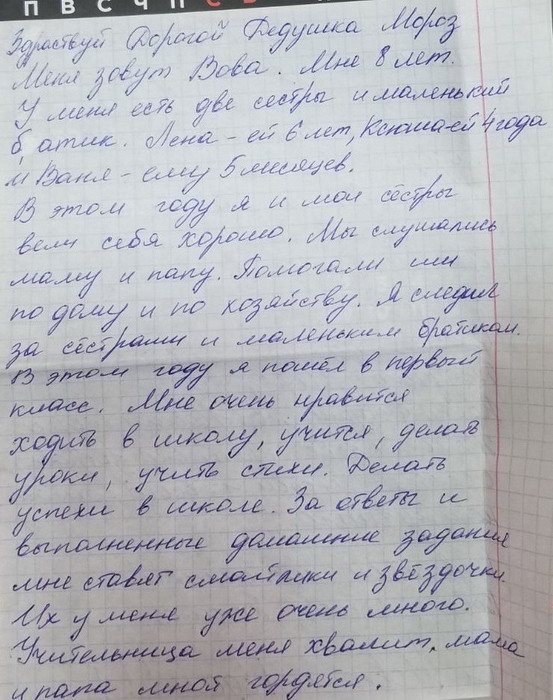 П В С Ч П С В
Здраствуй Дорогой Дедушка Мороз
Меня зовут Вова. Мне 8 лет.
У меня есть две сестры и маленький
братик. Лена - ей 6 лет, Ксюша - ей 4 года
и Ваня - ему 5 месяцев.
В этом году я и мои сёстры
вели себя хорошо. Мы слушались
маму и папу. Помогали им
по дому и по хозяйству. Я следил
за сёстрами и маленьким братиком.
В этом году я пошёл в первый
класс. Мне очень нравится
ходить в школу, учится, делать
уроки, учить стихи. Делать
успехи в школе. За ответы и
выполненные домашние задания
мне ставят смайлики и звёздочки.
Их у меня уже очень много.
Учительница меня хвалит, мама
и папа мной гордятся.